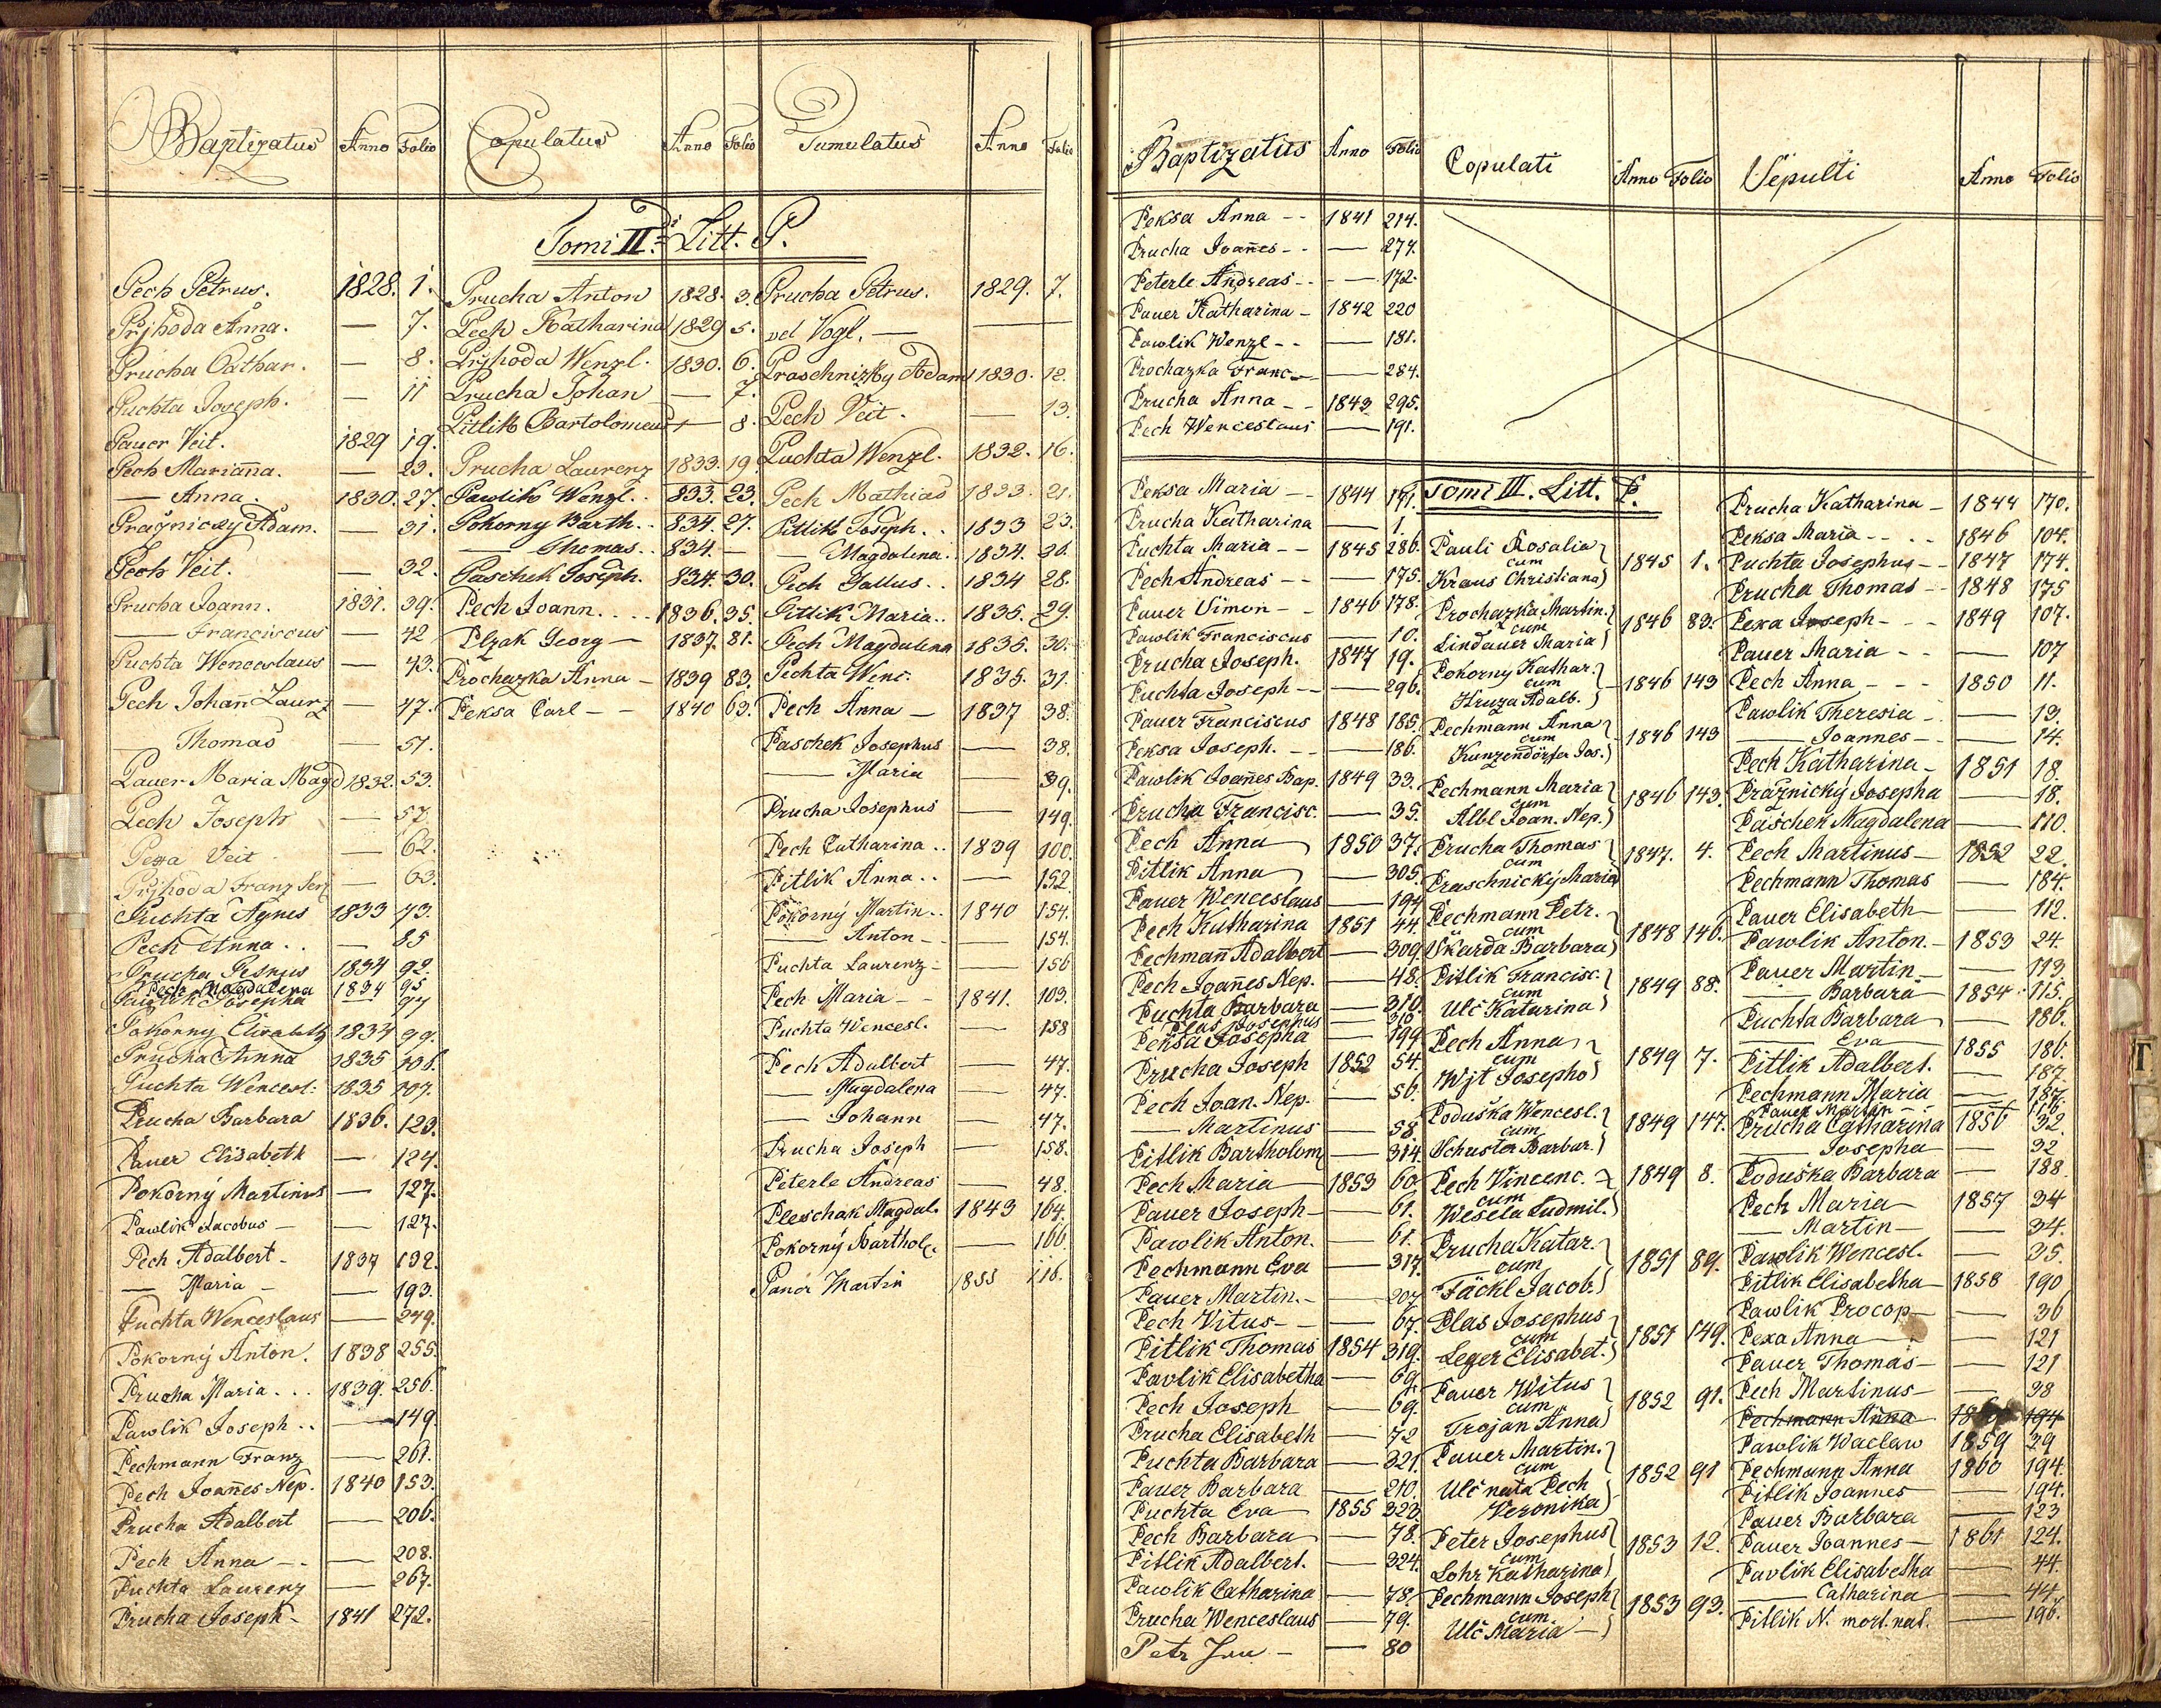 Baptizatus Anno Folio
Pech Petrus. 1828. 1.
Přjhoda Anna. — 7.
Prucha Cathar. — 8.
Puchta Joseph. — 11
Pauer Veit. 1829 19.
Pech Marianna. — 23.
— Anna. 1830. 27.
Pražnicky Adam. — 31.
Pech Veit. — 32.
Prucha Joann. 1831. 39.
— Franciscus — 42
Puchta Wenceslaus — 43.
Pech Johañ Laurz — 47.
— Thomas — 51.
Pauer Maria Magd 1832. 53.
Pech Joseph — 57.
Pexa Veit — 62.
Přjhoda Franz Ser. — 63.
Puchta Agnes 1833 73.
Pech Anna.. — 85
Prucha Petrus 1834 92.
Pech Magdalena 1834 95
Pawlik Josepha — 97
Pokorny Elisabeth 1834 99.
Prucha Anna 1835 106.
Puchta Wencesl. 1835 107.
Prucha Barbara 1836. 123.
Pauer Elisabeth — 124.
Pokorný Martinus — 127.
Pawlik Jacobus — — 127.
Pech Adalbert - 1837 132.
— Maria - — 193.
Puchta Wenceslaus — 249.
Pokorný Anton. 1838 255.
Prucha Maria... 1839. 256.
Pawlik Joseph.. — 149.
Pechmann Franz — 261.
Pech Joañes Nep. 1840 153.
Prucha Adalbert — 206.
Pech Anna -. — 208.
Puchta Laurenz — 267.
Prucha Joseph - 1841 272.
Copulatus Anno Folio
Tomi IIdi Litt. P.
Prucha Anton 1828. 3.
Pech Katharina 1829 5.
Přjhoda Wenzl. 1830. 6.
Prucha Johan — 7.
Pitlik Bartolomeus — 8.
Prucha Laurenz 1833. 19.
Pawlik Wenzl.. 833. 23.
Pokorny Barth.. 834. 27.
— Thomas.. 834. —
Paschek Joseph. 834. 30.
Pech Joann.... 1836. 35.
Plzak Georg — 1837. 81.
Prochazka Anna — 1839 83.
Peksa Carl - - 1840 63.
Tumulatus Anno Folio
Prucha Petrus. 1829. 7.
vel Vogl. — —
Praschnizky Adam 1830. 12.
Pech Veit. — 13.
Puchta Wenzl. 1832. 16.
Pech Mathias 1833. 21.
Pitlik Joseph.. 1833 23.
— Magdalena. 1834. 26.
Pech Gallus.. 1834 28.
Pitlik Maria.. 1835. 29.
Pech Magdalena 1835. 30.
Pechta Wenc. 1835. 31.
Pech Anna — 1837 38.
Paschek Josephus — 38.
— Maria — 39.
Prucha Josephus — 149.
Pech Catharina.. 1839 100.
Pitlik Anna.. — 152.
Pokorný Martin.. 1840 154.
— Anton - — 154.
Puchta Laurenz - — 156
Pech Maria - - 1841. 103.
Puchta Wencesl. — 158
Pech Adalbert — 47.
— Magdalena — 47.
— Johann — 47.
Prucha Joseph — 158.
Peterle Andreas — 48.
Pleschak Magdal. 1843 164.
Pokorný Barthol. — 166.
Pauer Martin 1855 116.
Baptizatus Anno Folio
Peksa Anna - - 1841 214.
Prucha Joañes - - — 274.
Peterle Andreas - - — 172.
Pauer Katharina - 1842 220
Pawlik Wenzl - - — 181.
Prochazka Franc — — 284.
Prucha Anna - - 1843 295.
Pech Wenceslaus — 191.
Peksa Maria — 1844 171.
Prucha Katharina — 1.
Puchta Maria - - 1845 286.
Pech Andreas - - — 175.
Pauer Simon - - 1846 178.
Pawlik Franciscus — 10.
Prucha Joseph. 1847 19.
Puchta Joseph - - — 296.
Pauer Franciscus 1848 185.
Peksa Joseph. - - — 186.
Pawlik Joañes Bap. 1849 33.
Prucha Francisc. — 35.
Pech Anna 1850 37.
Pitlik Anna — 305.
Pauer Wenceslaus — 194
Pech Katharina 1851 44.
Pechmañ Adalbert — 309.
Pech Joañes Nep. — 48.
Puchta Barbara — 310.
Plas Josephus — 310
Peksa Josepha — 199
Prucha Joseph 1852 54.
Pech Joan. Nep. — 56.
— Martinus — 58.
Pitlik Bartholom — 314.
Pech Maria 1853 60
Pauer Joseph — — 61.
Pawlik Anton. — 61.
Pechmann Eva — 317.
Pauer Martin. - — 207
Pech Vitus - — 67.
Pitlik Thomas 1854 319.
Pavlik Elisabetha — 69.
Pech Joseph — 69.
Prucha Elisabeth — 72
Puchta Barbara — 321.
Pauer Barbara — 210.
Puchta Eva 1855 323
Pech Barbara — 78.
Pitlik Adalbert. — 324.
Pawlik Catharina — 78.
Prucha Wenceslaus — 79.
Petr Jan - — 80
Copulati Anno Folio
Tomi III. Litt. P.
Pauli Rosalia
cum
Kraus Christiana 1845 1.
Prochazka Martin.
cum
Lindauer Maria 1846 83.
Pokorny Kathar.
cum
Hruza Adalb. 1846 143
Pechmann Anna
cum
Kunzendörfer Jos. 1846 143
Pechmann Maria
cum
Albl Joan. Nep. 1846 143.
Prucha Thomas
cum
Praschnický Maria 1847. 4.
Pechmann Petr.
cum
Skarda Barbara 1848 146.
Pitlik Francisc.
cum
Ulč Katarina 1849 88.
Pech Anna
cum
Wjt Josepho 1849 7.
Poduška Wencesl.
cum
Schuster Barbar. 1849 147.
Pech Vincenc.
cum
Wesela Ludmil. 1849 8.
Prucha Katar.
cum
Täckl Jacob. 1851 89.
Plas Josephus
cum
Leger Elisabet. 1851 149.
Pauer Witus
cum
Trojan Anna 1852 91.
Pauer Martin.
cum
Ulč nata Pech
Veronika 1852 91
Peter Josephus
cum
Lohr Katharina 1853 12.
Pechmann Joseph
cum
Ulč Maria — 1853 93.
Sepulti Anno Folio
Prucha Katharina - 1844 170.
Peksa Maria - - . . 1846 104.
Puchta Josephus - - 1847 174.
Prucha Thomas - 1848 175
Pexa Joseph - - - 1849 107.
Pauer Maria - - — 107
Pech Anna - - - 1850 11.
Pawlik Theresia - — 13.
— Joannes - — 14.
Pech Katharina - 1851 18.
Pražnický Josepha — 18.
Paschek Magdalena — 110.
Pech Martinus — 1852 22.
Pechmann Thomas — 184.
Pauer Elisabeth — 112.
Pawlik Anton. - 1853 24.
Pauer Martin — — 113.
— Barbara 1854. 115.
Puchta Barbara — 186.
— Eva 1855 186.
Pitlik Adalbert. — 187.
Pechmann Maria — 187.
Pauer Martin - - 116.
Prucha Catharina 1856 32.
— Josepha — 32
Poduška Barbara — 188.
Pech Maria 1857 34
— Martin — — 34.
Pawlik Wencesl. — 35.
Pitlik Elisabetha — 1858 190
Pawlik Procop — — 36
Pexa Anna — 121
Pauer Thomas — — 121
Pech Martinus — — 38
Pechmann Anna 194
Pawlik Waclaw 1859 39
Pechmann Anna 1860 194.
Pitlik Joannes — 194.
Pauer Barbara — 123
Pauer Joannes — 1861 124.
Pavlik Elisabetha — 44.
— Catharina — 44.
Pitlik N. mort. nat. — 196.